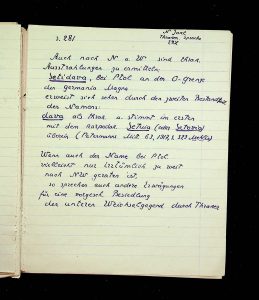 N. Jokl
Thraker. Sprache
282
z. 281
Auch nach N u. W sind thrak.
Ausstrahlungen zu ermitteln.
Setidava, bei Ptol an der O-Grenze
der Germania Magna
erweist sich schon durch den zweiten Bestandteil
des Namens:
dava als thrak u. stimmt im ersten
mit dem karpodak Setuia (oder Setovia)
überein (Petermans Mitt. 63, 1917,
Wenn auch der Name bei Ptol.
vielleicht nur irrtümlich zu weit
nach NW geraten ist.
so sprechen auch andere Erwägungen
für eine vorgesch. Besiedlung
der unteren Weichselgegend durch Thraker